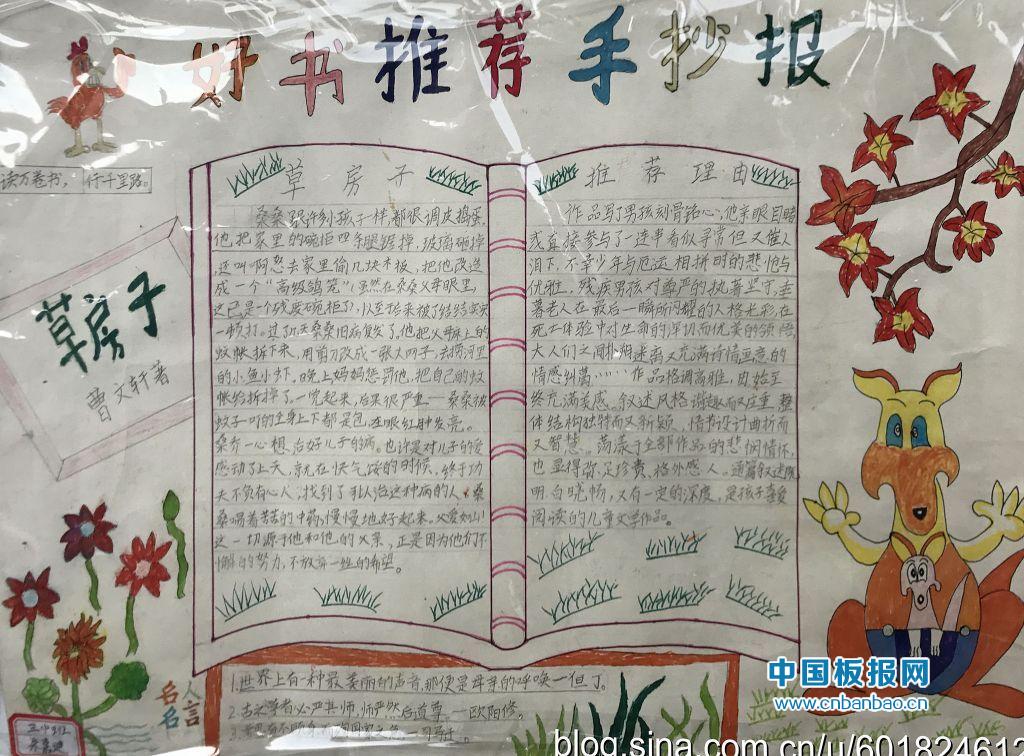 好书推荐手抄报
读万卷书，行千里路。
草房子
曹文轩著
草房子
桑桑跟许多孩子一样都很调皮捣蛋,
他把家里的碗柜四条腿锯掉,玻璃砸掉
还叫阿恕去家里偷几块木板，把他改造
成一个“高级鸽笼”(虽然在桑桑父母眼里,
这已是个残废碗柜了),以至后来被了结结实实
一顿打。过了几天桑桑旧病复发了。他把父母床上的
蚊帐拆下来，用剪刀改成一张大网子，去捞河里
的小鱼小虾。晚上妈妈惩罚他,把自己的蚊
帐给拆掉了一觉起来,后果很严重——桑桑被
蚊子叮的全身上下都是包,左眼红肿发亮。
桑乔一心想治好儿子的病。也许是对儿子的爱
感动了上天，就在快气馁的时候，终于功
夫不负有心人,找到了可以治这种病的人,桑
桑喝着苦苦的中药,慢慢地好起来。父爱如山!
这一切源于他和他的父亲，正是因为他们不
懈的努力,不放弃一丝的希望。
推荐理由
作品写了男孩刻骨铭心,他亲眼目睹
或直接参与了一连串看似寻常但又催人
泪下,不幸少年与厄运相拼时的悲怆与
优雅,残疾男孩对尊严的执着坚守,垂
暮老人在最后一瞬所闪耀的人格光彩,在
死亡体验中对生命的深切而优美的领悟,
大人们之间扑朔迷离又充满诗情画意的
情感纠葛……作品格调高雅，由始至
终充满美感。叙述风格谐趣而又庄重,整
体结构独特而又新颖，情节设计曲折而
又智慧。荡漾于全部作品的悲悯情怀,
也显得弥足珍贵,格外感人。通篇叙述既
明白晓畅,又有一定的深度,是孩子喜爱
阅读的儿童文学作品。
名人
名言
1.世界上有一种最美丽的声音,那便是母亲的呼唤一但丁。
2.古之学者必严其师,师严然后道尊 一欧阳修。
中国板报网
www.cnbanbao.cn
blog.sina.com.cn/u/601824612